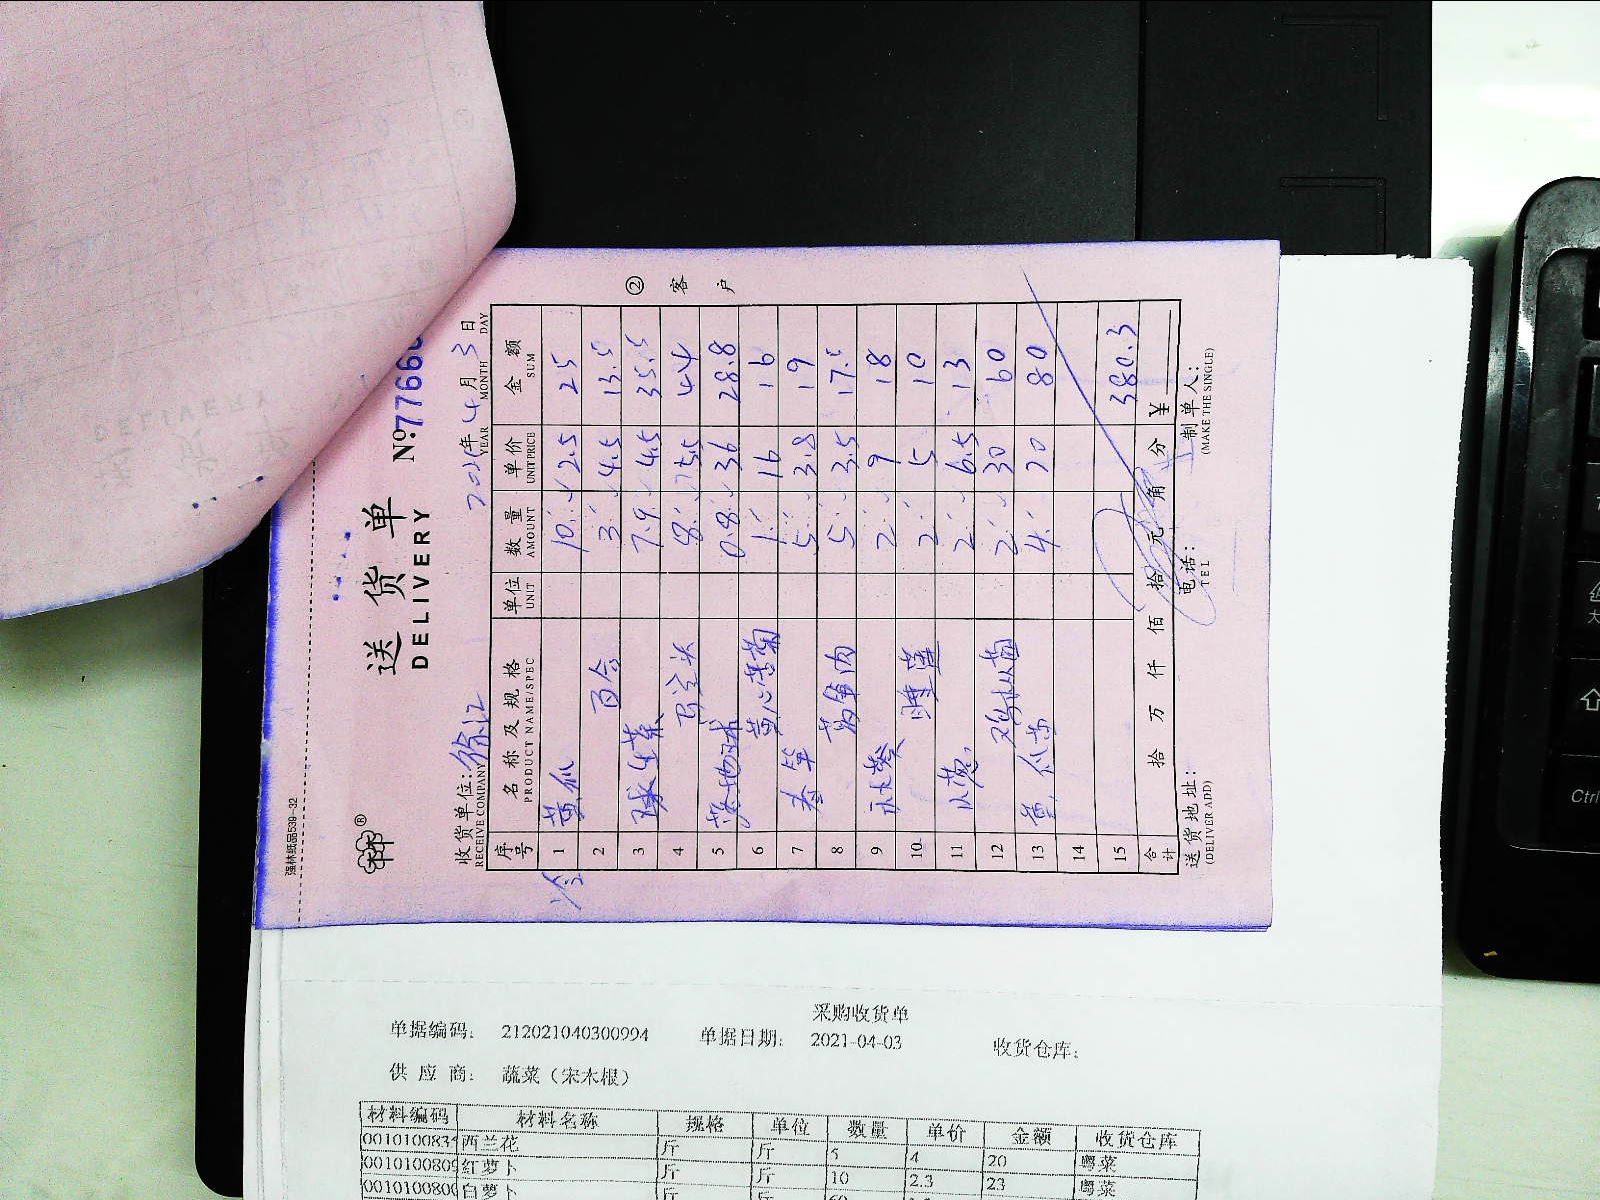 强林纸品539-32
送货单
DELIVERY
№77666
收货单位: 徐江
RECEIVE COMPANY
2021年 4月 3日
YEAR MONTH DAY
② 客户
序号 名称及规格 单位 数量 单价 金额
PRODUCT NAME/SPEC UNIT AMOUNT UNIT PRICE SUM
1 黄瓜 10 2.5 25
2 百合 3 4.5 13.5
3 球生菜 7.9 4.5 35.5
4 8 5.5 44
5 0.8 36 28.8
6 黄心 1 16 16
7 春笋 5 3.8 19
8 5 3.5 17.5
9 秋葵 2 9 18
10 2 5 10
11 2 6.5 13
12 鸡枞菌 2 30 60
13 4 20 80
14
15 380.3
合计 拾 万 仟 佰 拾 元 角 分 ¥
送货地址: 电话: 制单人:
(DELIVER ADD) TEL (MAKE THE SINGLE)
采购收货单
单据编码: 212021040300994 单据日期: 2021-04-03 收货仓库:
供应商: 蔬菜（宋木根）
材料编码 材料名称 规格 单位 数量 单价 金额 收货仓库
西兰花 斤 斤 5 4 20 粤菜
红萝卜 斤 斤 10 2.3 23 粤菜
白萝卜